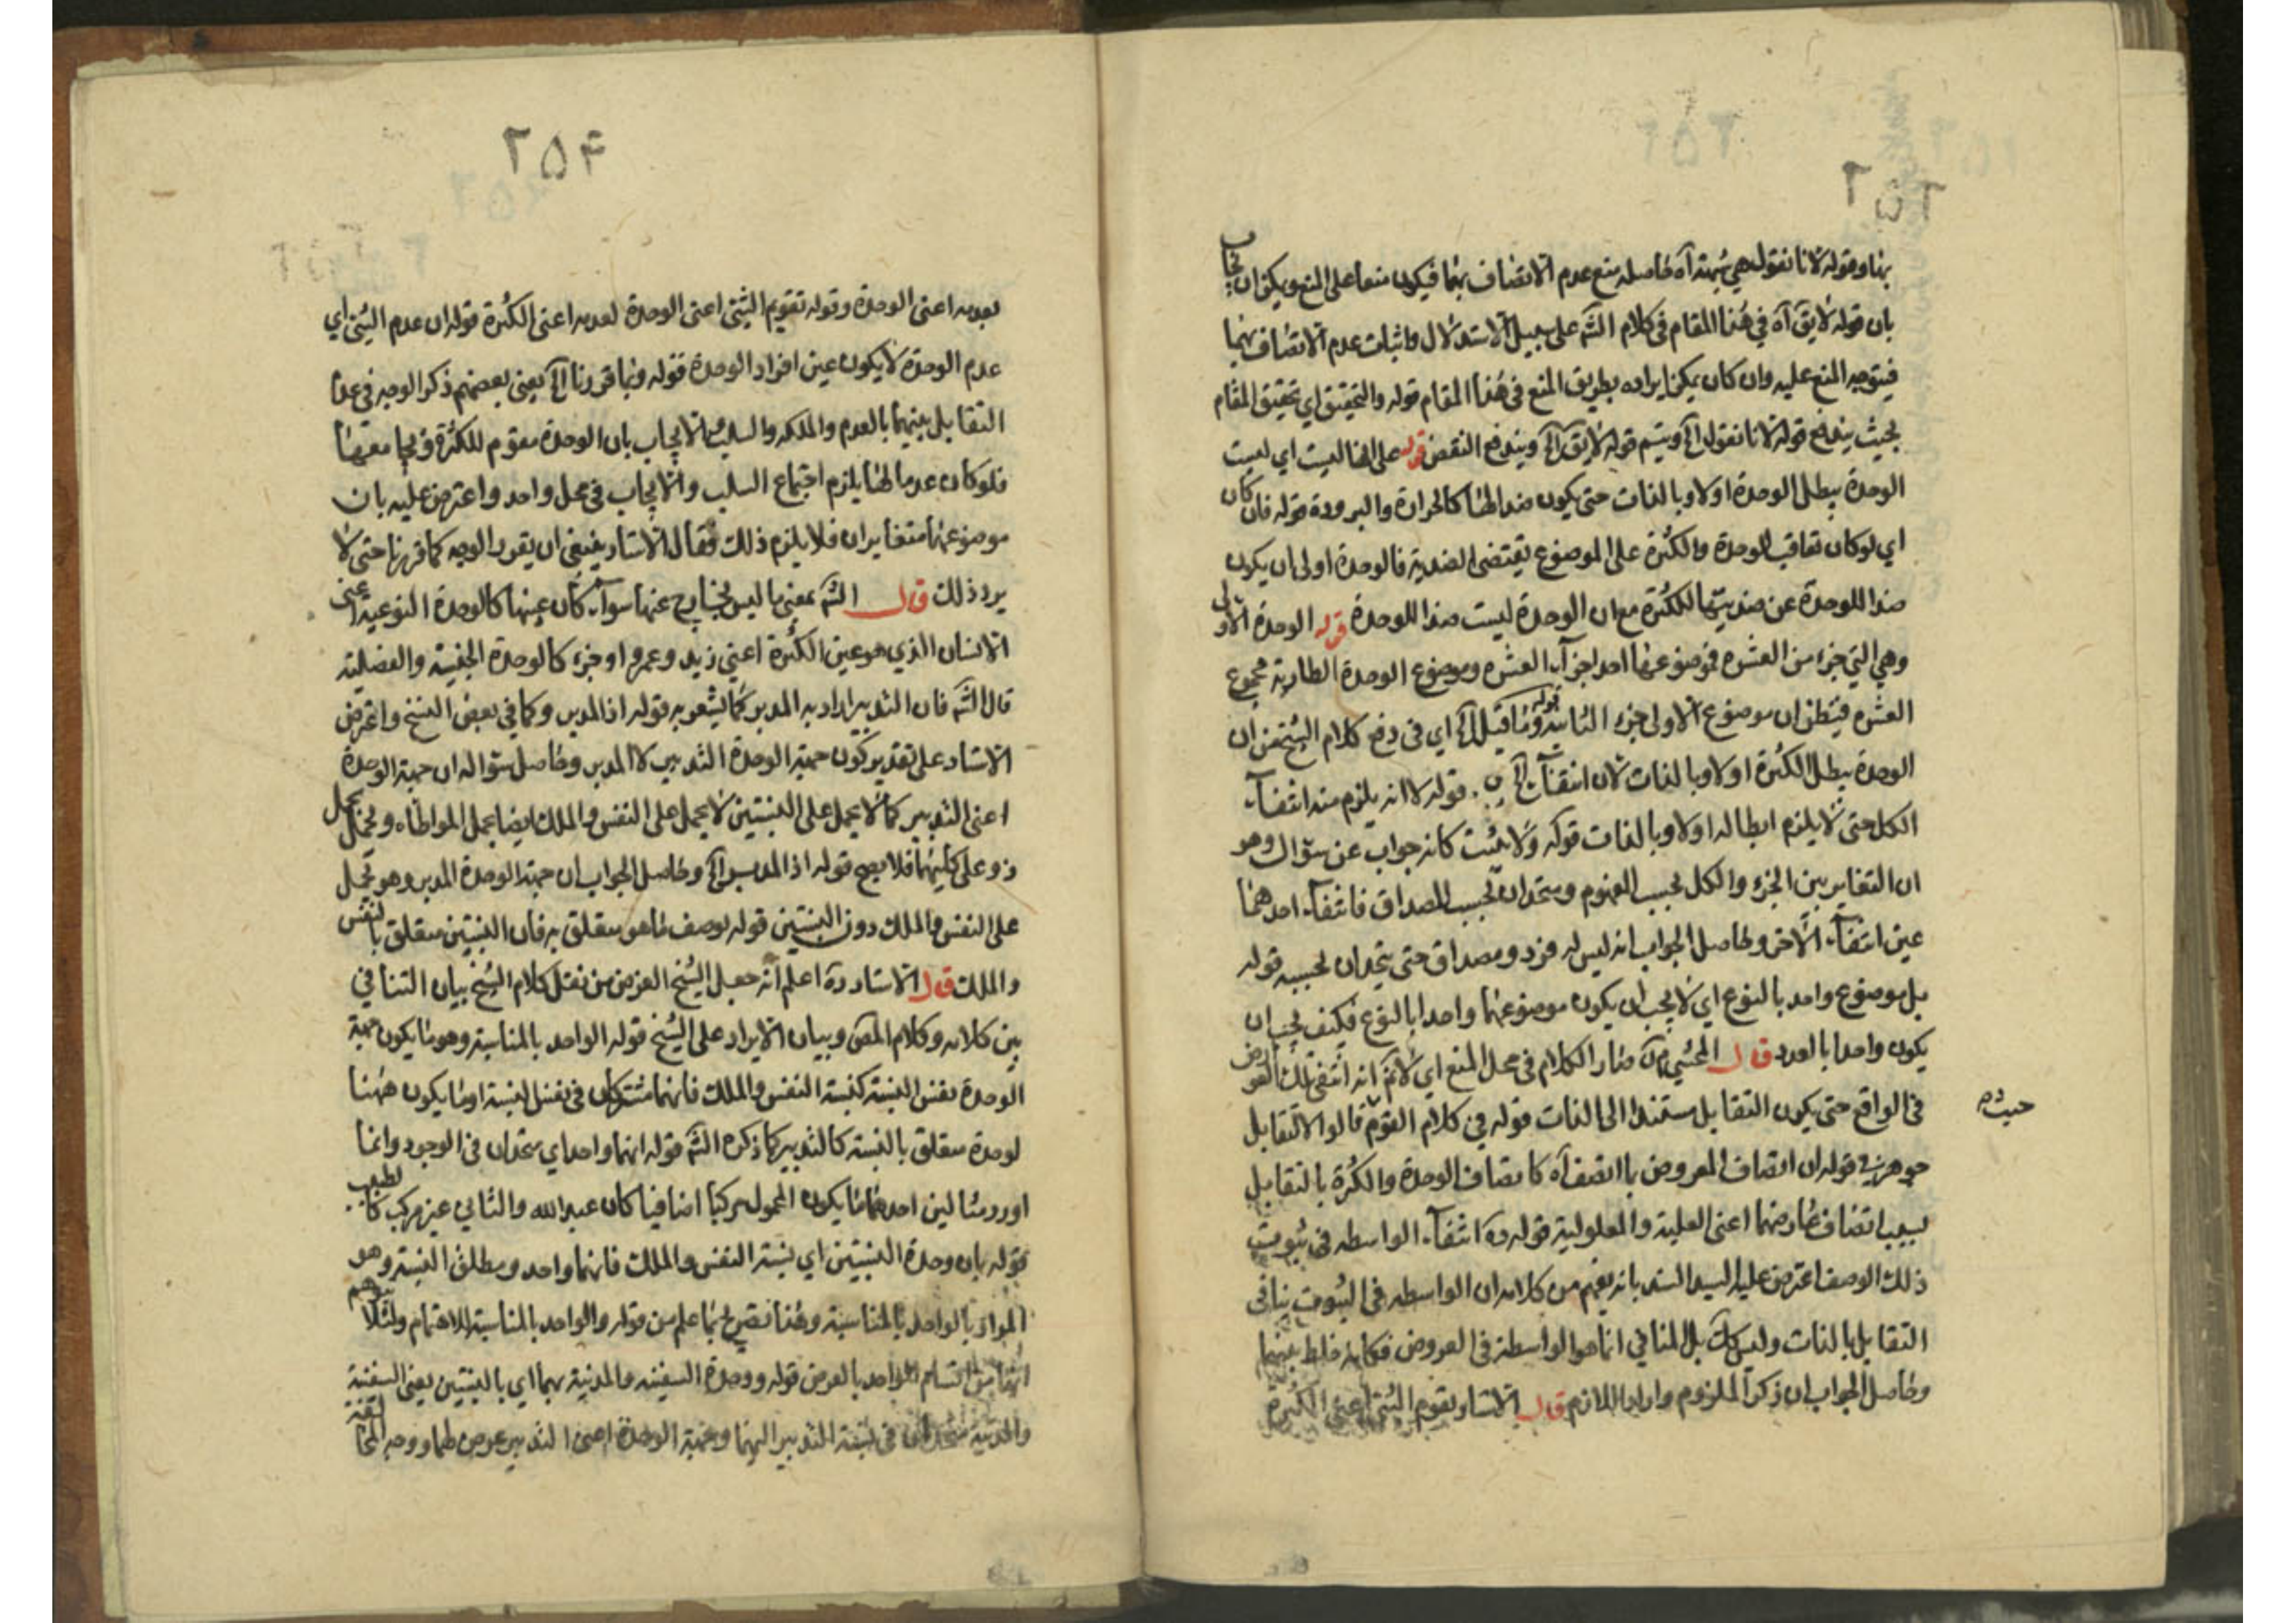 ٢٥٣
بهما وقوله لانا نقول هي شبهة آه حاصله منع عدم الاتصاف بهما فيكون منعا على المنع ويمكن ان يجاب
بان قوله لا يق آه في هذا المقام في كلام الشه على سبيل الاستدلال واثبات عدم الاتصاف بهما
فيتوجه المنع عليه وان كان يمكن ايراده بطريق المنع في هذا المقام قوله والتحقيق اي تحقيق المقام
بحيث يندفع قوله لانا نقول الخ ويتم قوله لا يق الخ ويندفع النقض قوله على انها ليست اي ليست
الوحدة يبطل الوحدة اولا وبالذات حتى يكون ضدا لها كالحرارة والبرودة قوله فان كان
اي لو كان تعاقب الوحدة والكثرة على الموضوع يقتضي الضدية فالوحدة اولى ان يكون
ضدا للوحدة عن ضديتها للكثرة مع ان الوحدة ليست ضدا للوحدة قوله الوحدة الاولى
وهي التي جزء من العشره فموضوعها احد اجزآء العشره وموضوع الوحدة الطارية مجموع
العشره فيظن ان موضوع الاولى جزء الثانيه قوله وما قيل الخ اي في دفع كلام الشيخ من ان
الوحدة يبطل الكثرة اولا وبالذات لان انتفاء الخ قوله لا انه يلزم منه انتفآء
الكل حتى لا يلزم ابطاله اولا وبالذات قوله ولا يثبت كانه جواب عن سؤال وهو
ان التغاير بين الجزء والكل بحسب المفهوم ومتحدان بحسب المصداق فانتفآء احدهما
عين انتفآء الآخر وحاصل الجواب انه ليس له فرد ومصداق حتى يتحدان بحسبه قوله
بل موضوع واحد بالنوع اي لا يجب ان يكون موضوعهما واحدا بالنوع فكيف يجب ان
يكون واحدا بالعدد قال المحشي مدار الكلام في محل المنع اي لا نم انه انتفى تلك العوارض
في الواقع حتى يكون التقابل مستندا الى الذات قوله في كلام القوم قالوا لا تقابل
حيث ره
جوهري قوله ان اتصاف المعروض بما اتصف آه كاتصاف الوحدة والكثرة بالتقابل
بسبب اتصاف عارضهما اعني العلية والمعلولية قوله ره انتفآء الواسطه في ثبوت
ذلك الوصف اعترض عليه السيد السند بانه يفهم من كلامه ان الواسطه في الثبوت ينافي
التقابل بالذات وليس كك بل المنافي انما هو الواسطة في العروض فكانه خلط بينهما
وحاصل الجواب ان ذكر الملزوم واراد اللازم قال الاستاد يقوم الشئ اعني الكثرة
٢٥۴
بعدمه اعني الوحدة وقوله تقويم الشئ اعني الوحدة لعدمه اعني الكثرة قوله ان عدم الشئ اي
عدم الوحدة لا يكون عين افراد الوحدة قوله وبما قررنا الخ يعني بعضهم ذكر الوجه في عدم
التقابل بينهما بالعدم والملكه والسلب والايجاب بان الوحدة مقوم للكثرة
فلو كان عدما لها يلزم اجتماع السلب والايجاب في محل واحد واعترض عليه بان
موضوعهما متغايران فلا يلزم ذلك فقال الاستاد ينبغي ان يقرر الوجه كما قررنا حتى لا
يرد ذلك قال الشه بمعنى ما ليس بخارج عنها سوآء كان عينها كالوحدة النوعية اعني
الانسان الذي هو عين الكثرة اعني زيد وعمرو او جزء كالوحدة الجنسية والفصلية
قال الشه فان التدبير اراد به المدبر كما يشعر به قوله اذ المدبر وكما في بعض النسخ واعترض
الاستاد على تقدير كون جهة الوحدة التدبير لا المدبر وحاصل سؤاله ان جهة الوحدة
اعني التدبير كما لا يحمل على النسبتين لا يحمل على النفس والملك ايضا بحمل المواطاه ويحمل بحمل
ذو على كليهما فلا يصح قوله اذ المدبر الخ وحاصل الجواب ان جهة الوحدة المدبر وهو يحمل
على النفس والملك دون النسبتين قوله بوصف ما هو متعلق به فان النسبتين متعلق بالنفس
والملك قال الاستاد ره اعلم انه جعل الشيخ الغرض من نقل كلام الشيخ بيان التنافي
بين كلامه وكلام المص وبيان الايراد على الشيخ قوله الواحد بالمناسبة وهو ما يكون جهة
الوحدة نفس النسبة كنسبة النفس والملك فانهما مشتركان في نفس النسبة او ما يكون جهة
لوحدة متعلق بالنسبة كالتدبير كما ذكره الشه قوله انهما واحد اي متحدان في الوجود وانما
اورد مثالين احدهما ما يكون المحمول مركبا اضافيا كان عبد الله والثاني غير مركب كالطبيب
قوله بان وحدة النسبتين اي نسبة النفس والملك فانهما واحد ومطلق النسبة وهو
المراد بالواحد بالمناسبة وهذا تصريح بما علم من قوله والواحد بالمناسبة للاهتمام ولئلا يتوهم
انها من اقسام الواحد بالعرض قوله ووحدة السفينه والمدينة بهما اي بالنسبتين يعني السفينة
والمدينة متحدان في نسبة التدبير اليهما وجهة الوحدة اعني التدبير عرض لهما ووجه